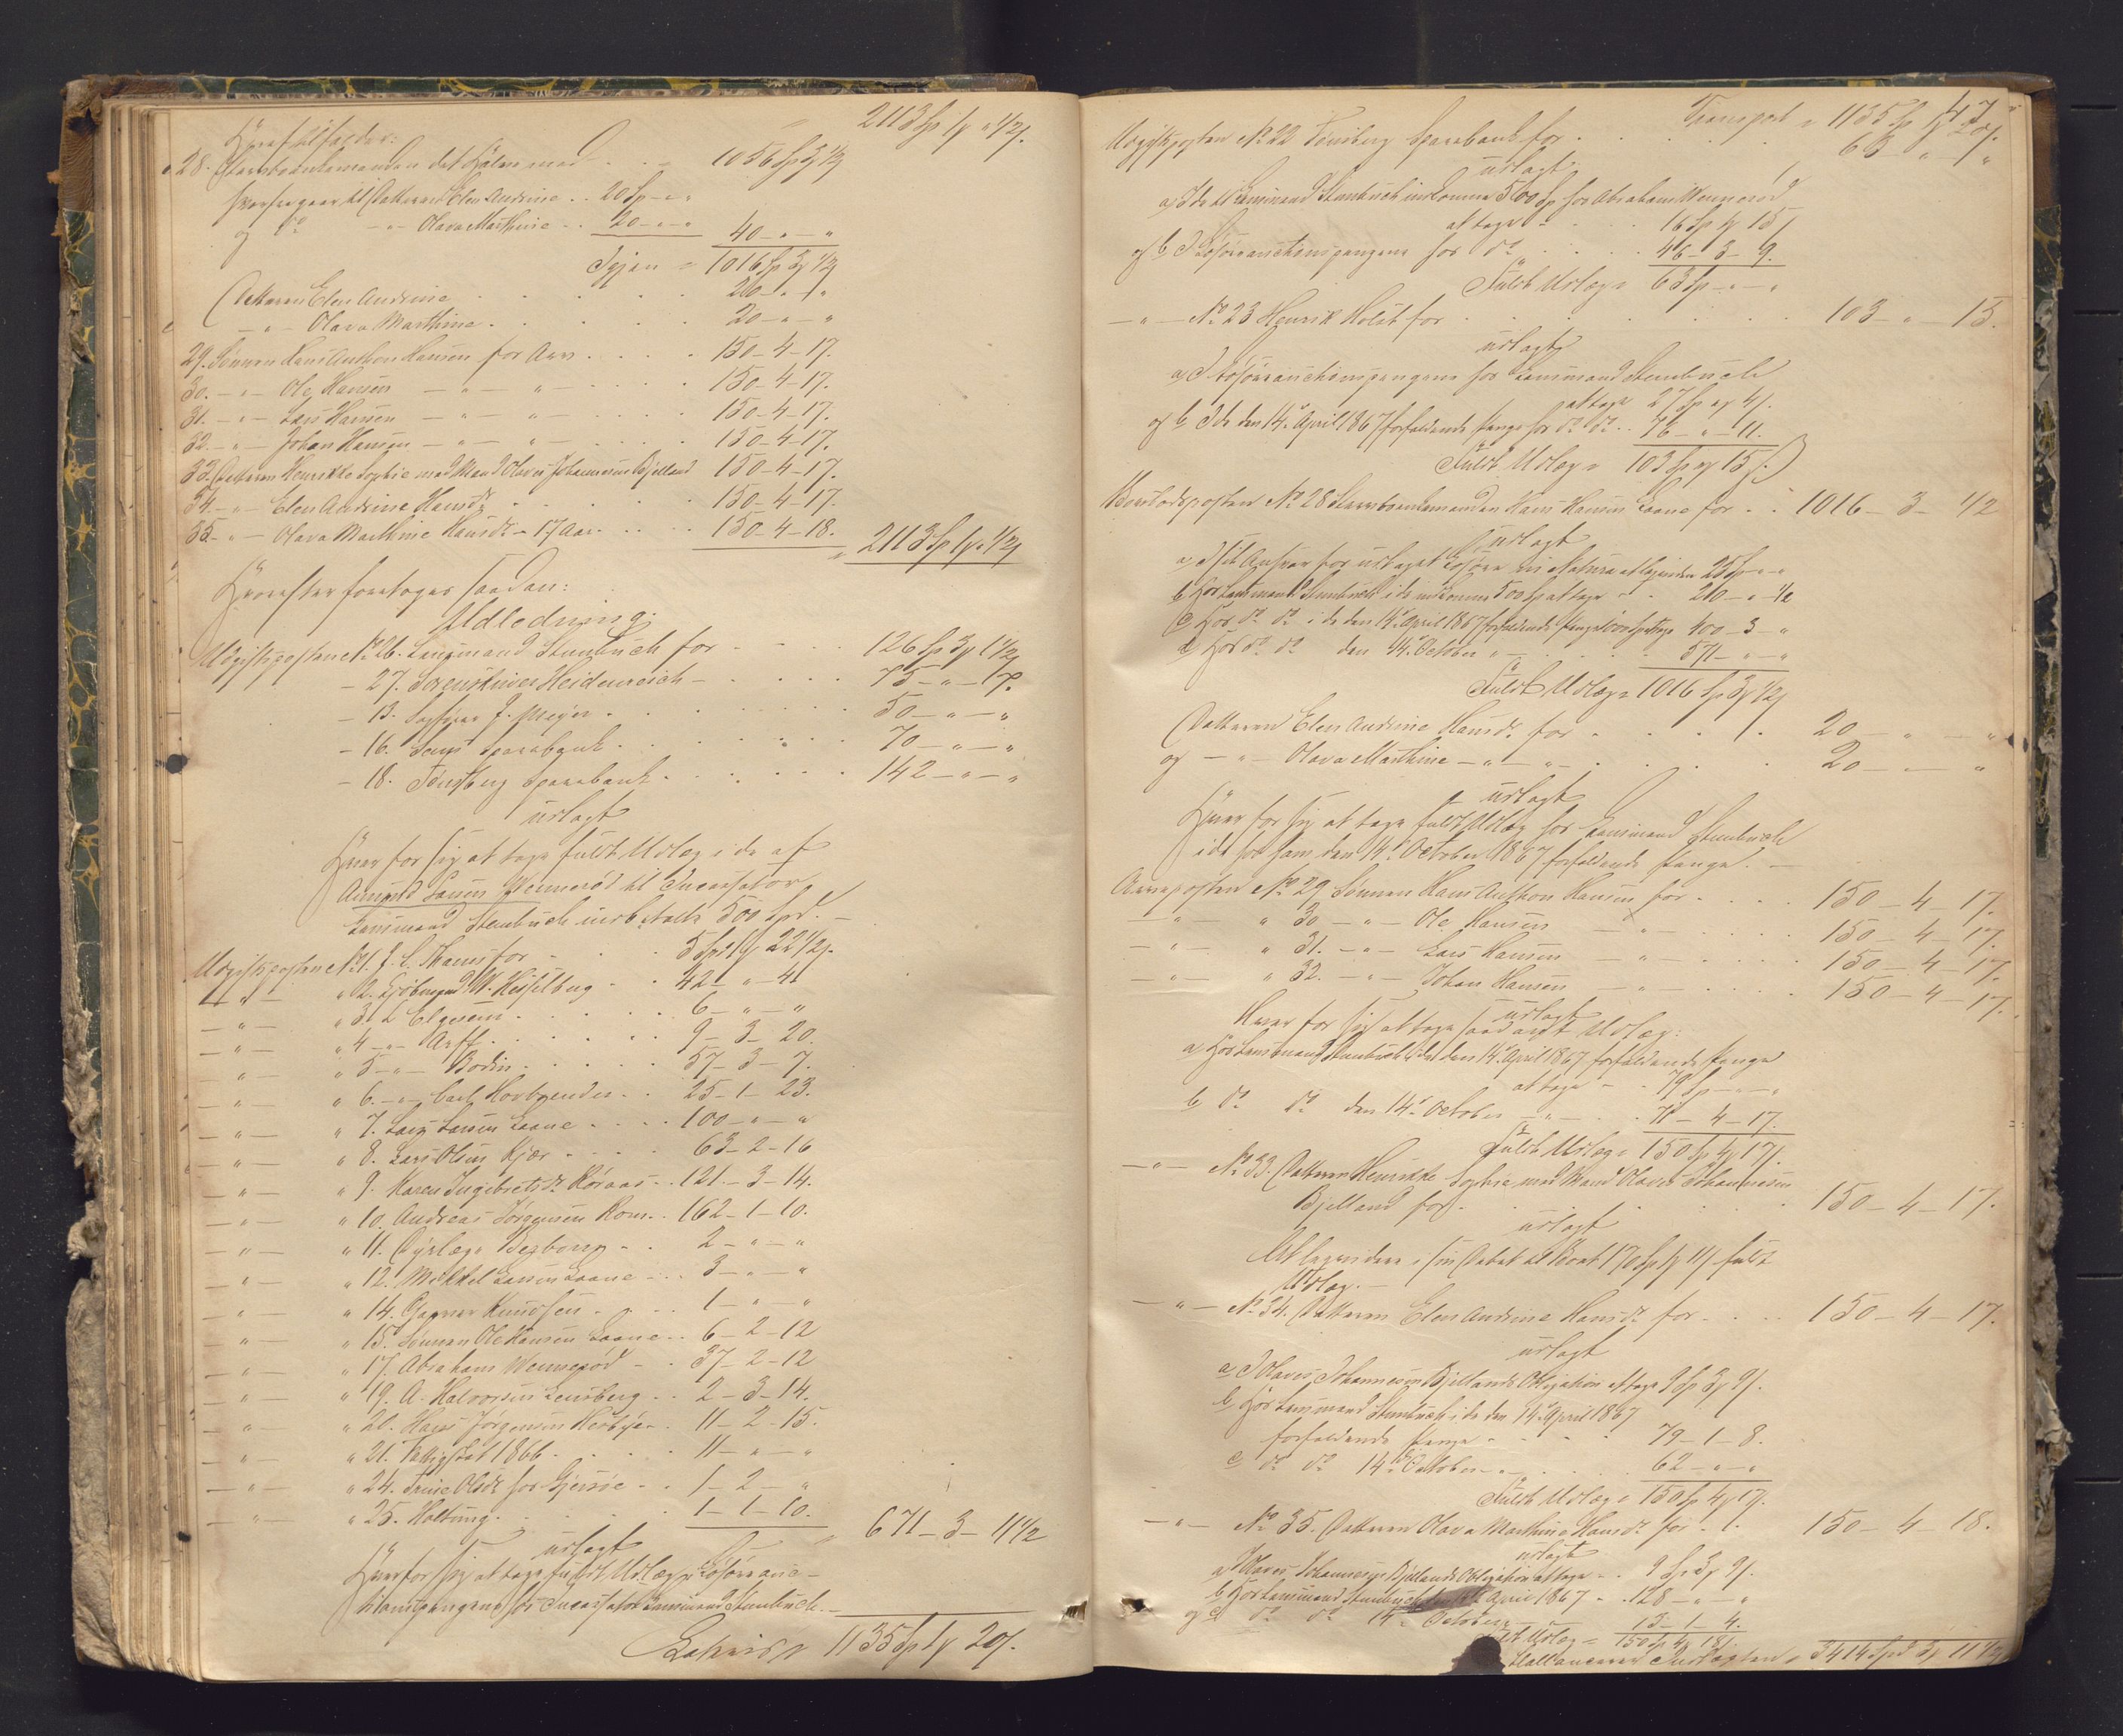 2113 Sp 1 ʒ ½ s.
Hvoraf tilfalder:
28. Stervboenkemanden det halve med . . 1056 Sp 3 ʒ ½ s
hvorfra gaar til Datteren Elen Andrine . . 20 Sp - " - "
og do - " - Olava Mathine . . 20 - " - " 40 - " - "
Igjen = 1016 Sp 3 ʒ ½ s
Datteren Elen Andrine . . . 20 - " - "
- " - Olava Marthine . . . 20 - " - "
29. Sønnen Hans Anthon Hansen for Arv . . . 150 - 4 - 17.
30. - " - Ole Hansen - " - " - . . . 150 - 4 - 17.
31. - " - Lars Hansen - " - " - . . . 150 - 4 - 17.
32. - " - Johan Hansen - " - " - . . . 150 - 4 - 17.
33. Datteren Henrikke Sophie med Mand Olaves Johannesen Bjelland 150 - 4 - 17.
34. - " - Elen Andrine Hansdr . . . 150 - 4 - 17.
35. - " - Olava Marthine Hansdr - 17 Aar . . . 150 - 4 - 18.
= 2113 Sp 1 ʒ ½ s
Hvorefter foretoges saadan:
Udlodning:
Udgiftsposten No 26. Lensmand Stenbuch for . . . 126 Sp 3 ʒ 1½ s
- 27. Sorenskriver Heidenreich - . . . 75 - " - 18.
- 13. Sagfører J. Meyer . . . 50 - " - "
- 16. Sems Sparebank . . . 70 - " - "
- 18. Tønsberg Sparebank . . . 142 - " - "
udlagt
Hver for sig at tage fuldt Udlæg i de af
Amund Larsen Wennerød til Incassator
Lensmand Stenbuch indbetalte 500 Spd. -
Udgiftsposten No 1. J. C. Thaues for . . . 5 Spd 1 ʒ 22½ s.
- " - " 2. Kjøbmand W. Hesselberg . . 42 - " - 4
- " - " 3. - " Elgueen . . . 6 - " - "
- " - " 4 - " - Arff . . . 9 - 3 - 20.
- " - " 5 - " - Bodin . . . 57 - 3 - 7.
- " - " 6. - " - Carl Hovbrender . . 25 - 1 - 23.
- " - " 7. Lars Larsen Laane . . . 100 - " - "
- " - " 8. Lars Olsen Kjær . . . 63 - 2 - 16
- " - " 9. Karen Ingebretsdr Røraas . . 121. - 3 - 14.
- " - " 10. Andreas Jørgensen Rom . . 162 - 1 - 10.
- " - " 11. Dyrlæge Begborg . . 2 - " - "
- " - " 12. Mikkel Larsen Laane . . . 3 - " - "
- " - " 14. Gunner Knudsen . . . 1 - " - "
- " - " 15. Sønnen Ole Hansen Laane . . 6 - 2 - 12
- " - " 17. Abraham Wennerød - . . 37 - 2 - 12
- " - " 19. A. Halvorsen Lensberg . . 2 - 3 - 14.
- " - " 20. Hans Jørgensen . . 11 - 2 - 15.
- " - " 21. 1866 . . . 11 - " - "
- " - " 24. Trine Olsdr for . . 1 - 2 - "
- " - " 25. Holtung . . . 1 - 1 - 10.
= 671 - 3 - 11½
udlagt
Hver for sig at tage fuldt Udlæg i Løsøreauc-
tionspengene hos Incassator Lensmand Stenbuch. -
Lateris = 1135 Sp 1 ʒ 20 s.
Transport = 1135 Sp 1 ʒ 20 s.
Udgiftsposten No 22 Tønsberg Sparebank for . . . 63 " - "
udlagt
a) I de til Lensmand Stenbuch indkomne 500 Sp hos Abraham Wennerød
at tage . . . 16 Sp 1 ʒ 15 s
og b I Løsøreauctionspengene hos do . . . 46 - 3 - 9.
Fuldt Udlæg = 63 Sp - " - "
- " - No 23 Henrik Holst for . . . 103 - " - 15.
udlagt
a) I Løsøreauctionspengene hos Lensmand Stenbuch
at tage 27 Sp " ʒ 4 s.
og b I de den 14de April 1867 forfaldende Penge hos do do . . 76 - " - 11.
Fuldt Udlæg = 103 Sp " ʒ 15 s.
Boeslodsposten No 28 Stervboenkemanden Hans Hansen Laane for . . 1016 - 3 - ½
udlagt
a) Sit Ansvar for udtaget Løsøre in Natura at liqvidere 25 Sp - " - "
b Hos Lensmand Stenbuch i de indkomne 500 Sp at tage . . 20 - " - ½
c Hos do do i de den 14de April 1867 forfaldende Penge at tage 400 - 3 - "
d Hos do do den 14de October " . . . 571 - " - "
Fuldt Udlæg = 1016 Sp 3 ʒ ½ s
Datteren Elen Andrine Hansdr for . . . 20 - " - "
og - " - Olava Marthine - " - " - . . . 20 - " - "
udlagt
Hver for sig at tage fuldt Udlæg hos Lensmand Stenbuch
i de hos ham den 14de October 1867 forfaldende Penge. -
Arveposten No 29 Sønnen Hans Anthon Hansen for . . . 150 - 4 - 17.
- " - " 30 - " - Ole Hansen - " - . . . 150 - 4 - 17.
- " - " 31. - " - Lars Hansen - " - . . . 150 - 4 - 17.
- " - " 32. - " - Johan Hansen - " - . . . 150 - 4 - 17.
udlagt
Hver for sig at tage saadant Udlæg:
a) Hos Lensmand Stenbuch i de den 14de April 1867 forfaldende Penge
at tage . . 79 Sp - " - "
b do do den 14de October - " - . . 71 - 4 - 17.
Fuldt Udlæg = 150 Sp 4 ʒ 17 s.
- " - No 33. Datteren Henrikke Sophie med Mand Olaves Johannesen
Bjelland for . . . 150 - 4 - 17.
udlagt
At liqvidere i sin Debet til Boet 170 Sp 1 ʒ 11 s fuldt
Udlæg. -
- " - No 34. Datteren Elen Andrine Hansdr for . . . 150 - 4 - 17.
udlagt
a) I Olaves Johannesen Bjellands Obligation at tage 9 Sp 3 ʒ 9 s.
b Hos Lensmand Stenbuch i de den 14de April 1867
forfaldende Penge . . . 79 - 1 - 8.
c do do 14de October - " - . . . 62 - " - "
Fuldt Udlæg = 150 Sp 4 ʒ 17 s.
- " - No 35. Datteren Olava Marthine Hansdr for . . . 150 - 4 - 18.
udlagt
a) I Olaves Johannesen Bjellands Obligation at tage . . 9 Sp 3 ʒ 9 s.
b Hos Lensmand Stenbuch den 14de April 1867 . . 128 - " - "
og c do do 14de October . . . 13 - 1 - 4.
Udlæg = 150 Sp 4 ʒ 18 s.
Ballancerer Indtægten = 3414 Spd 3 ʒ 11½ s